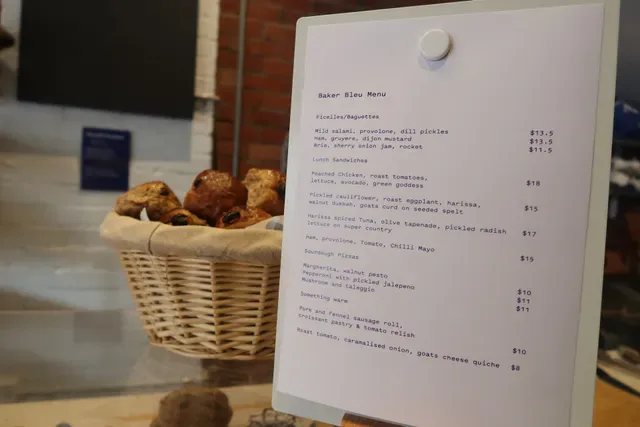 Baker Bleu Menu
Ficelles/Baguettes
Mild salami, provolone, dill pickles $13.5
Ham, gruyere, dijon mustard $13.5
Brie, sherry onion jam, rocket $11.5
Lunch Sandwiches
Poached Chicken, roast tomatoes,
lettuce, avocado, green goddess $18
Pickled cauliflower, roast eggplant, harissa,
walnut dukkah, goats curd on seeded spelt $15
Harissa spiced Tuna, olive tapenade, pickled radish
lettuce on super country $17
Ham, provolone, Tomato, Chilli Mayo $15
Sourdough Pizzas
Margherita, walnut pesto $10
Pepperoni with pickled jalapeno $11
Mushroom and taleggio $11
Something warm
Pork and fennel sausage roll,
croissant pastry & tomato relish $10
Roast tomato, caramelised onion, goats cheese quiche $8